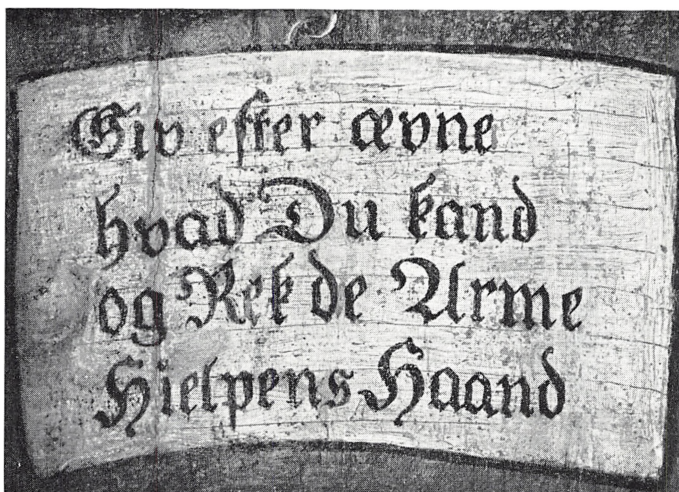 Giv efter ævne
hvad Du kand
og Rek de Arme
Hielpens Haand